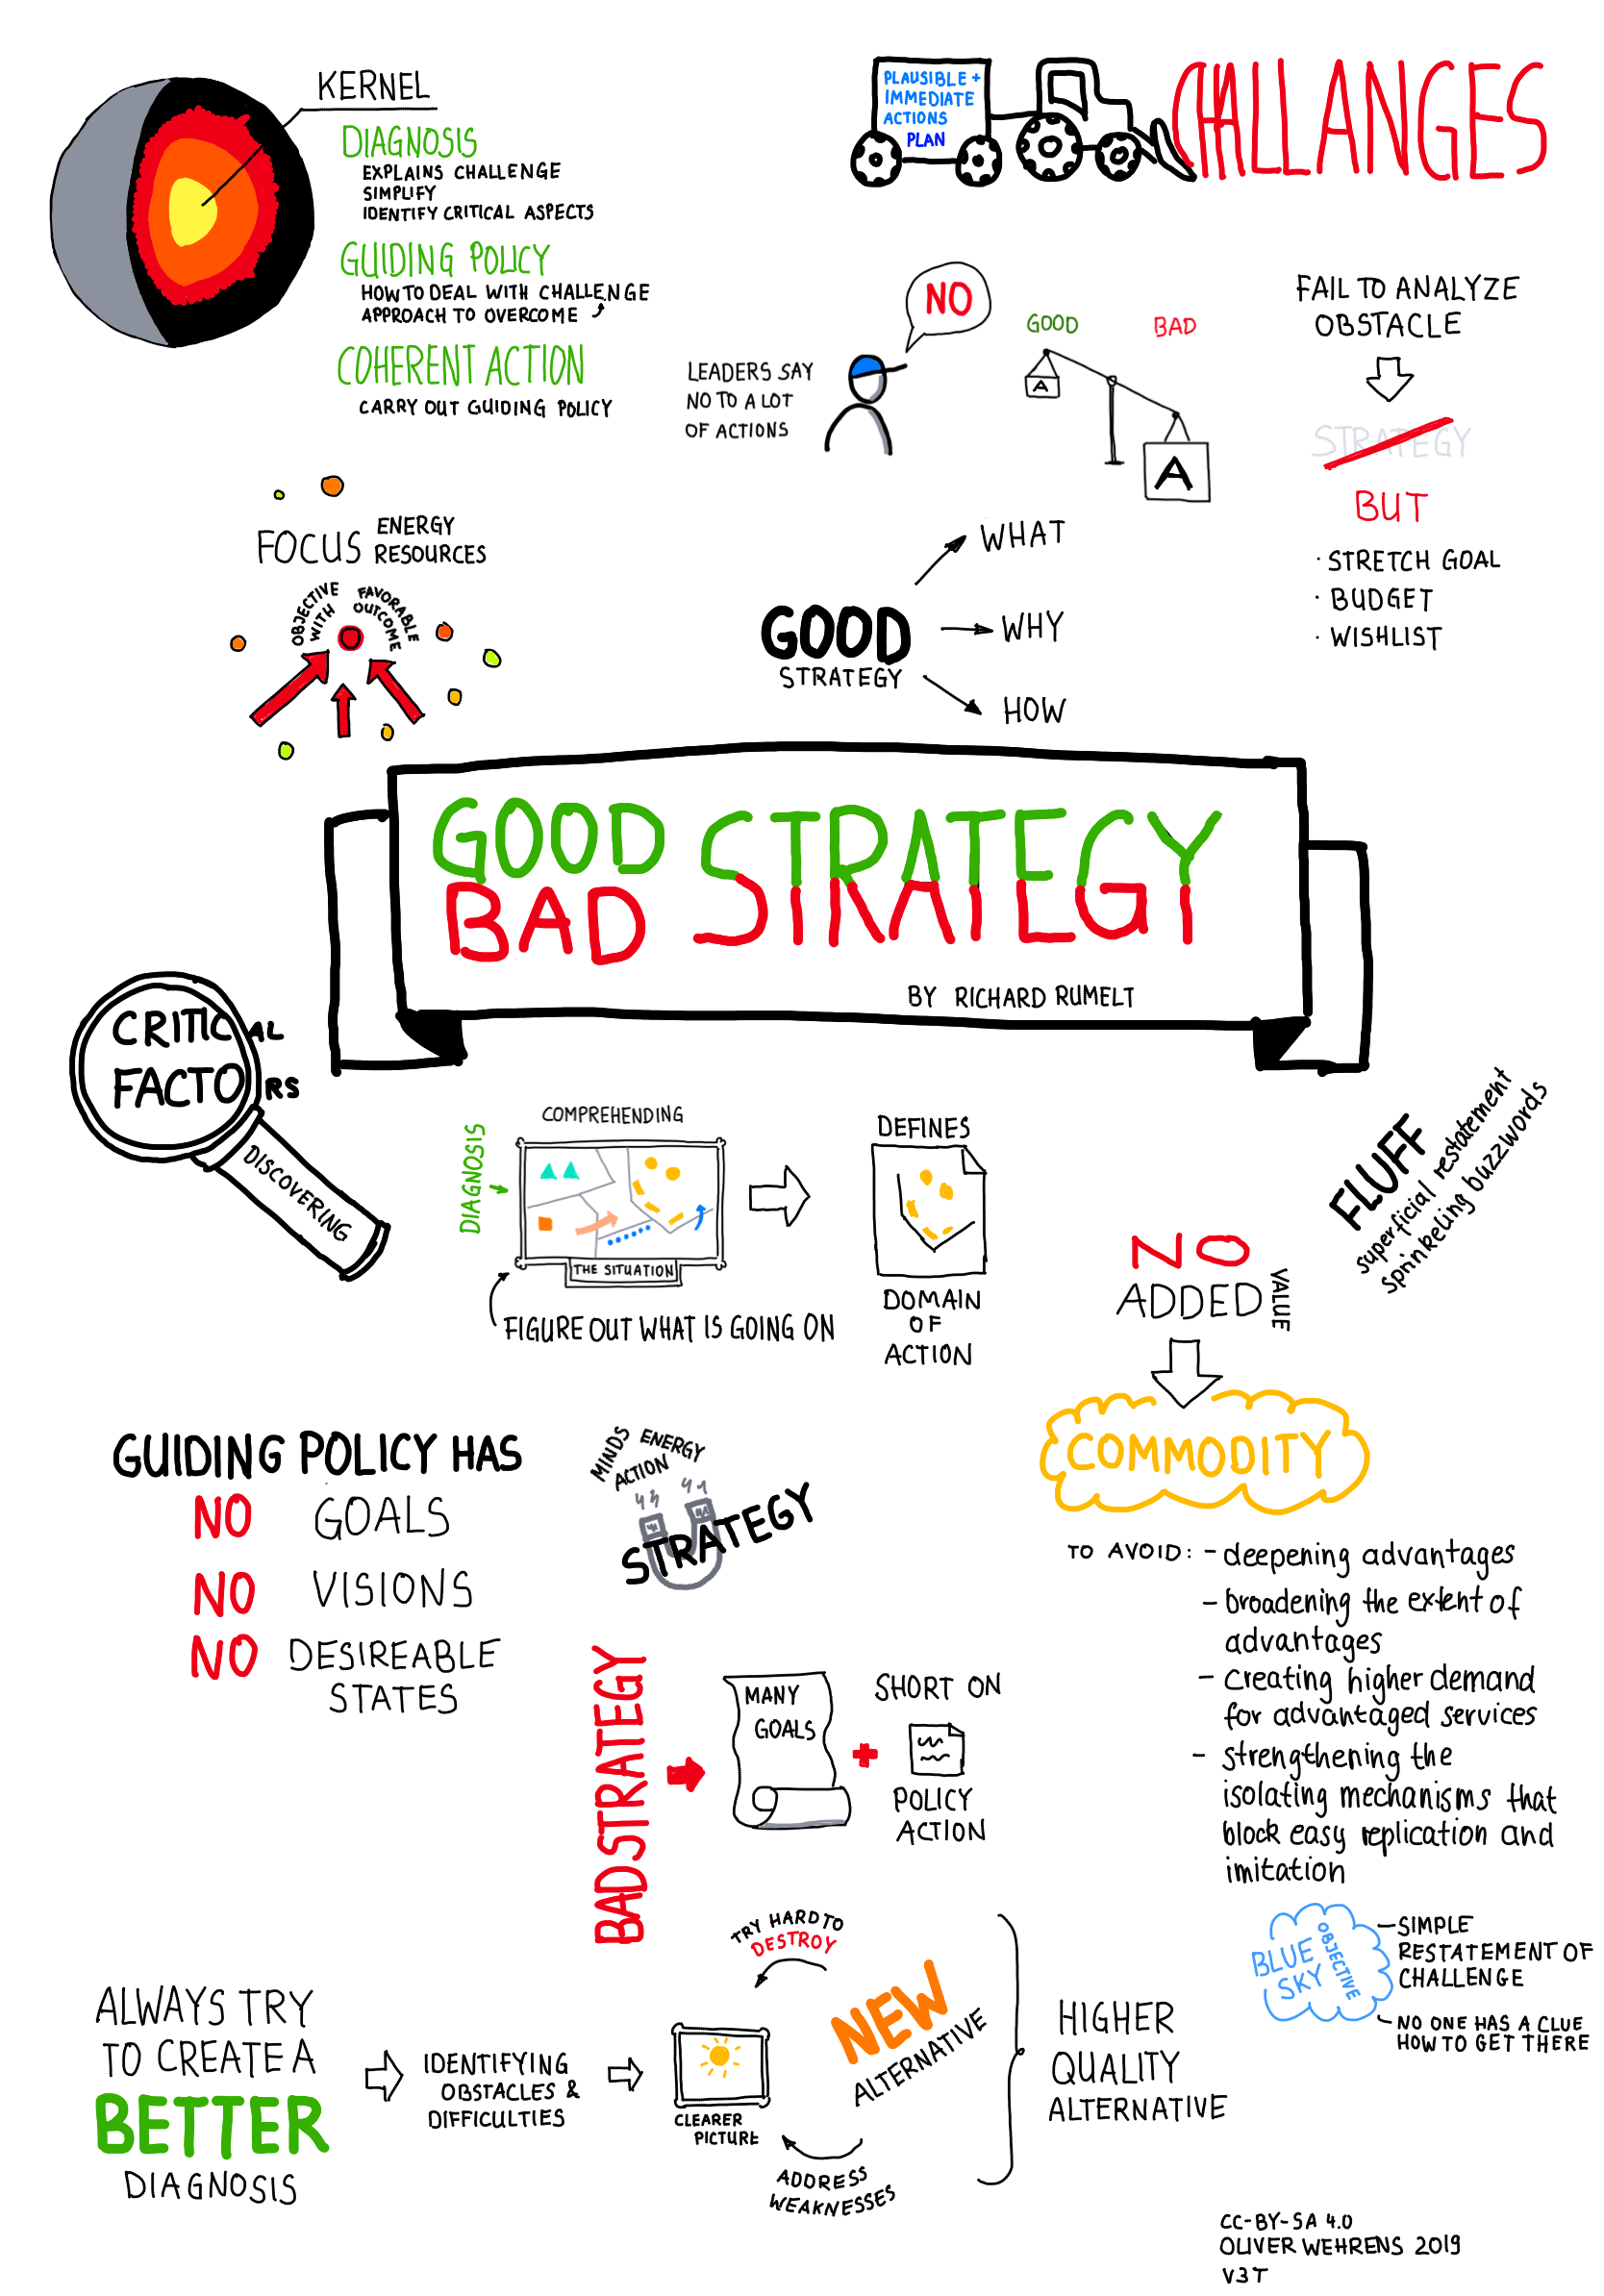 KERNEL
DIAGNOSIS
EXPLAINS CHALLENGE
SIMPLIFY
IDENTIFY CRITICAL ASPECTS
GUIDING POLICY
HOW TO DEAL WITH CHALLENGE
APPROACH TO OVERCOME
COHERENT ACTION
CARRY OUT GUIDING POLICY
PLAUSIBLE +
IMMEDIATE
ACTIONS
PLAN
CHALLANGES
LEADERS SAY
NO TO A LOT
OF ACTIONS
NO
GOOD
BAD
A
A
FAIL TO ANALYZE
OBSTACLE
STRATEGY
BUT
· STRETCH GOAL
· BUDGET
· WISHLIST
FOCUS
ENERGY
RESOURCES
OBJECTIVE
WITH
FAVORABLE
OUTCOME
GOOD
STRATEGY
WHAT
WHY
HOW
GOOD STRATEGY
BAD
BY RICHARD RUMELT
CRITICAL
FACTORS
DISCOVERING
DIAGNOSIS
COMPREHENDING
THE SITUATION
FIGURE OUT WHAT IS GOING ON
DEFINES
DOMAIN
OF
ACTION
FLUFF
superficial restatement
sprinkeling buzzwords
NO
ADDED
VALUE
COMMODITY
TO AVOID: - deepening advantages
- broadening the extent of
advantages
- creating higher demand
for advantaged services
- strengthening the
isolating mechanisms that
block easy replication and
imitation
GUIDING POLICY HAS
NO GOALS
NO VISIONS
NO DESIREABLE
STATES
MINDS
ENERGY
ACTION
STRATEGY
BAD STRATEGY
MANY
GOALS
SHORT ON
POLICY
ACTION
BLUE
SKY
OBJECTIVE
SIMPLE
RESTATEMENT OF
CHALLENGE
NO ONE HAS A CLUE
HOW TO GET THERE
ALWAYS TRY
TO CREATE A
BETTER
DIAGNOSIS
IDENTIFYING
OBSTACLES &
DIFFICULTIES
CLEARER
PICTURE
TRY HARD TO
DESTROY
NEW
ALTERNATIVE
ADDRESS
WEAKNESSES
HIGHER
QUALITY
ALTERNATIVE
CC-BY-SA 4.0
OLIVER WEHRENS 2019
V3T